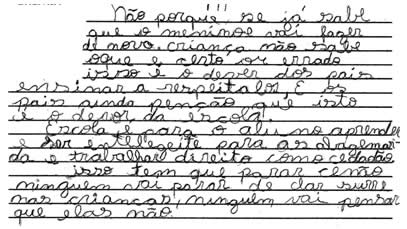 Não porquê!!! se já sabe
que o meninoe vai fazer
de novo. criança não sabe
oque e certo ou errado
isso é o dever dos pais
ensinar a respeitalos, E os
pais ainda penção que isto
é o dever da escola.
Escola é para o aluno aprender
e ser entelegeite para as
da e trabalhar direito como cedadão
isso tem que parar cenão
ninguém vai parar de dar surre
nas crianças, ninguem vai pensar
que elas não